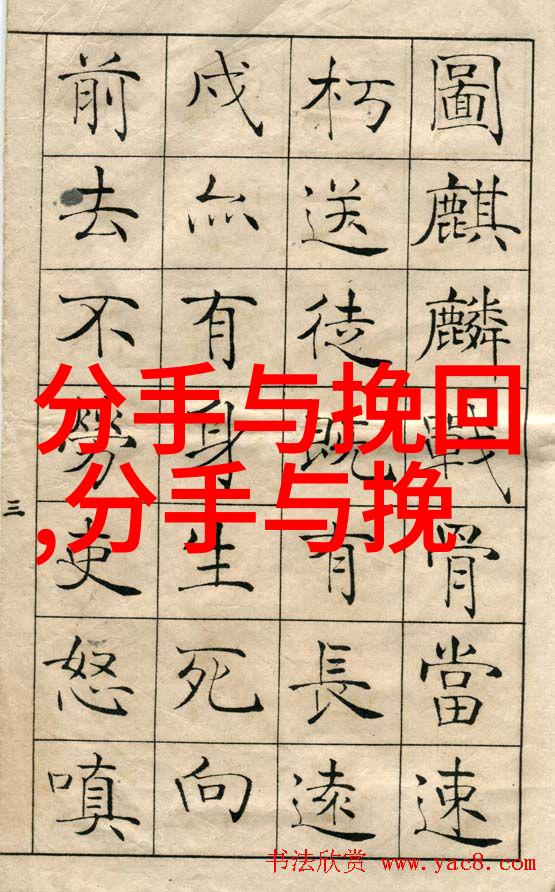 圖麒麟戰骨當速
朽送徒既有長遠
戍亦有身生死向
前去不勞吏怒嗔
三
分手与挽回
,分手与挽
书法欣赏 www.yac8.com